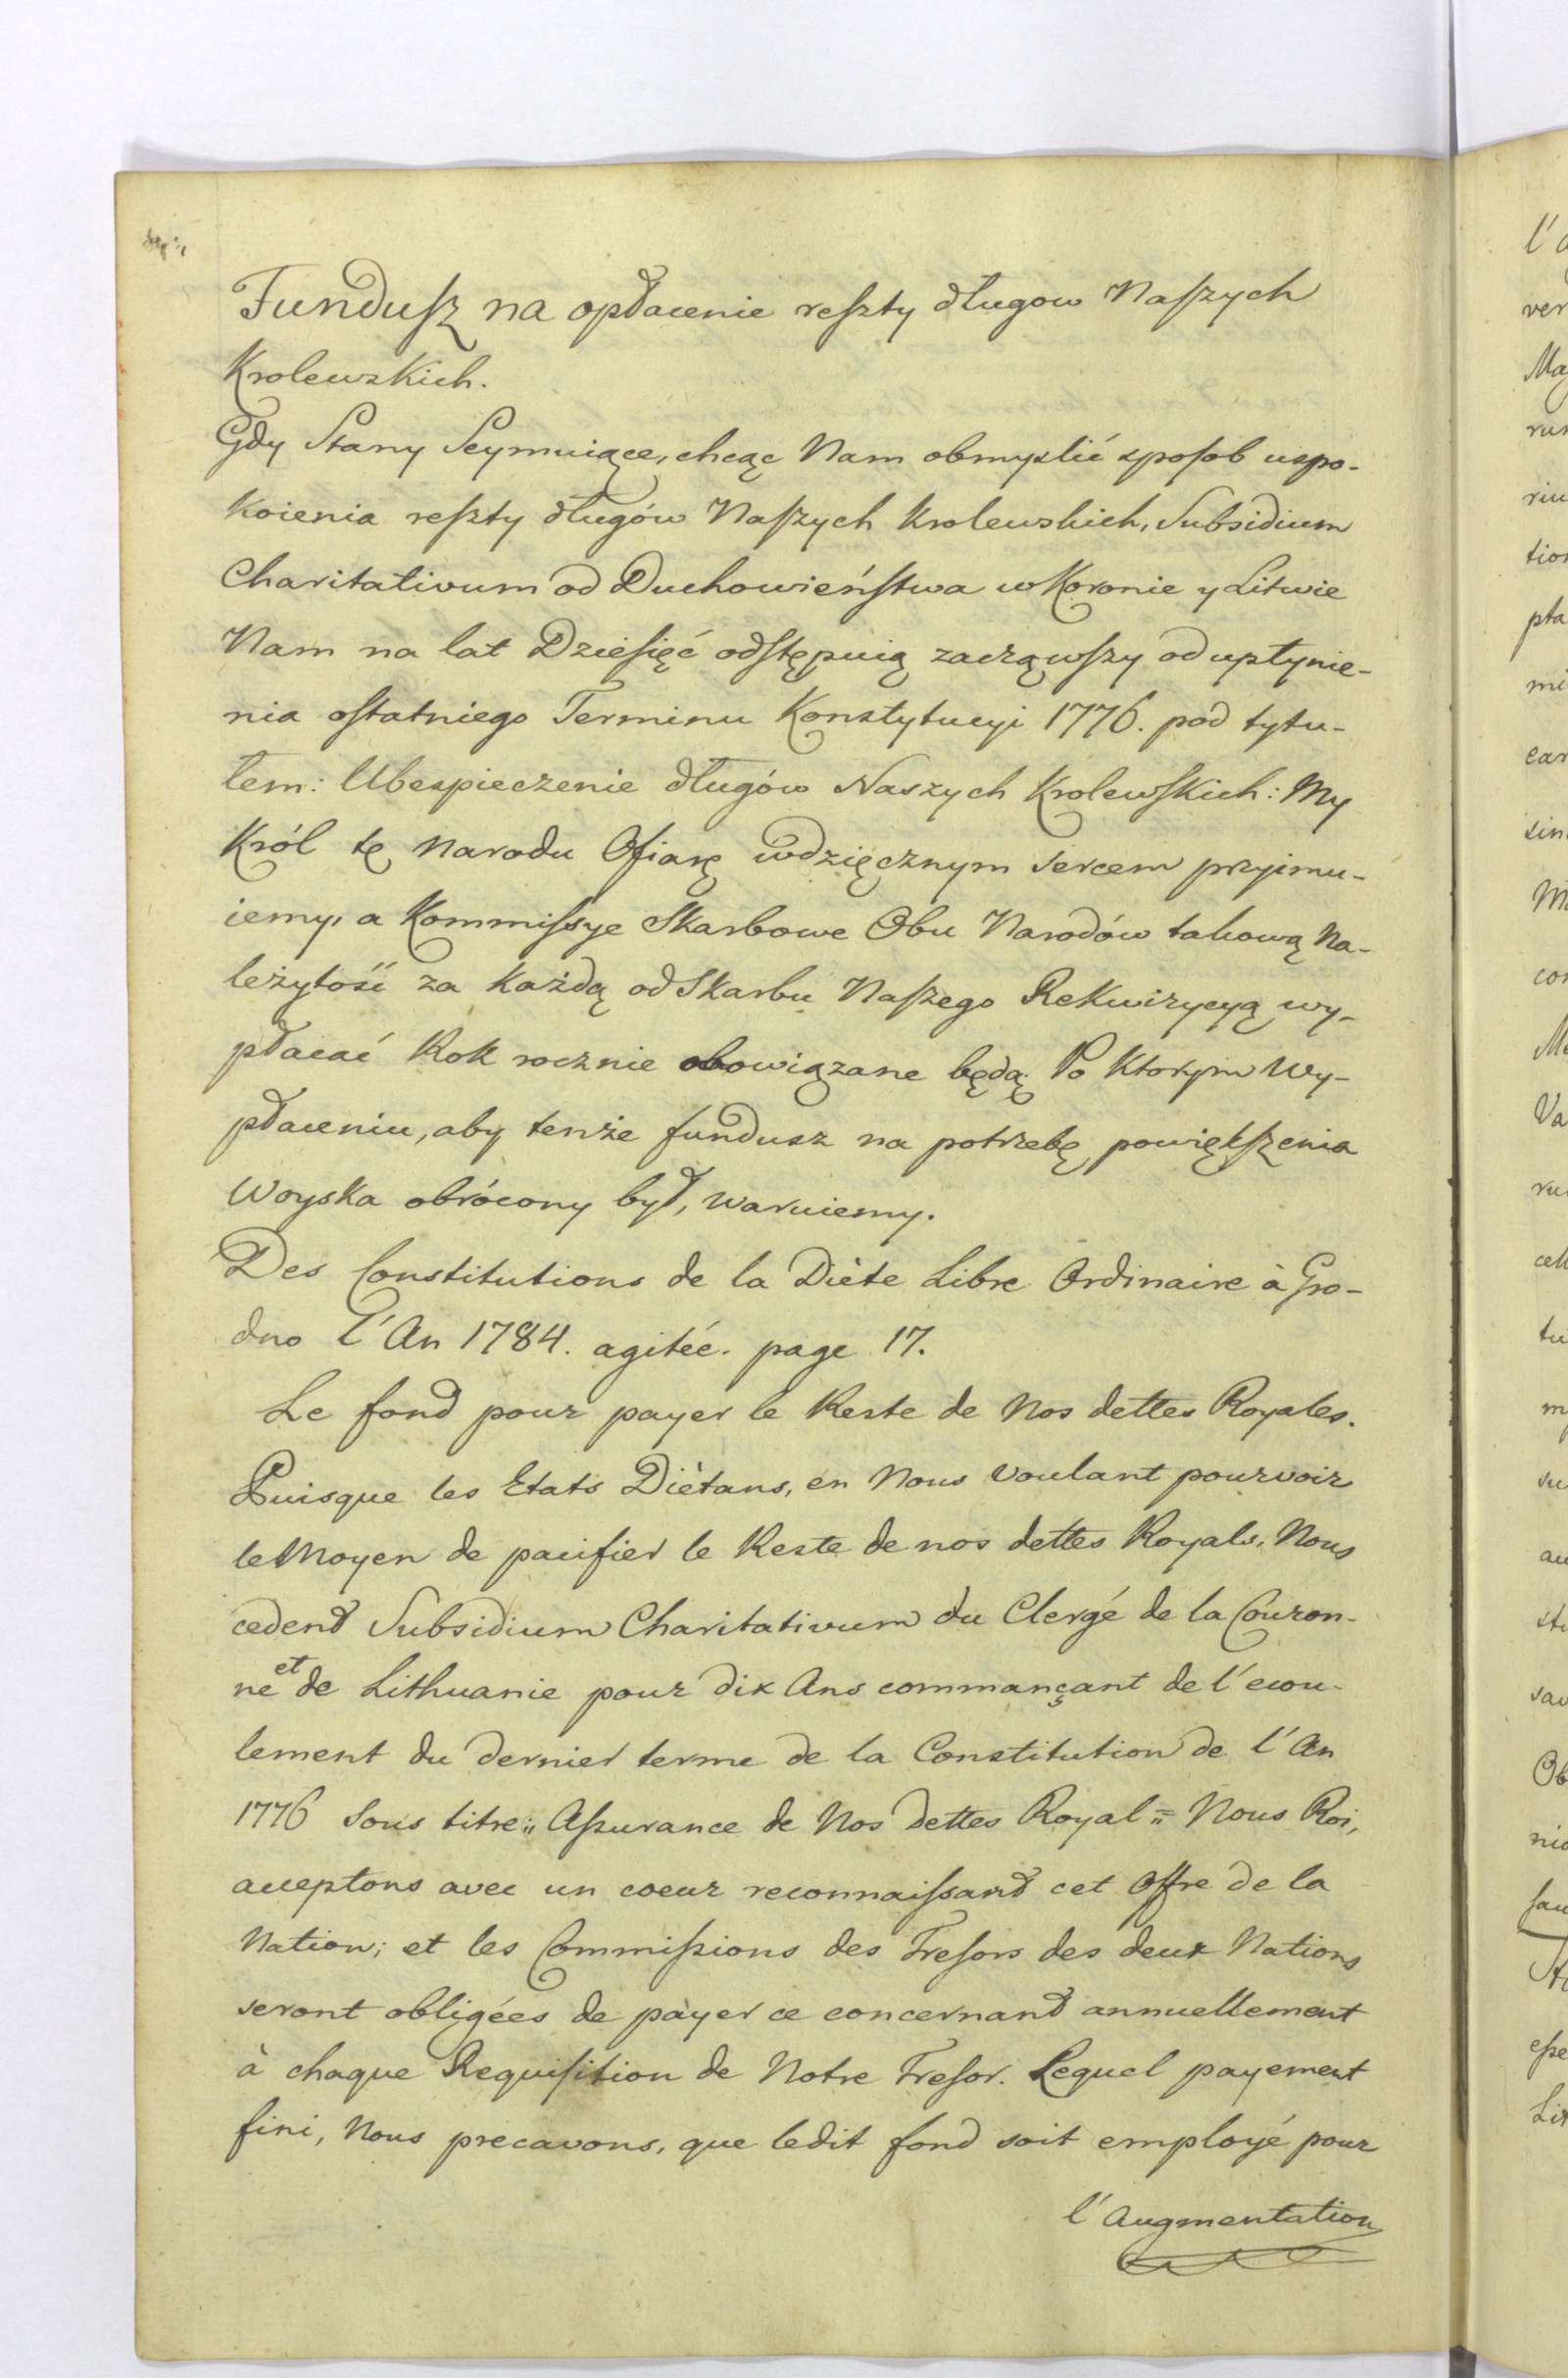 Fundusz na opłacenie reszty długow Naszych
Krolewskich.
Gdy Stany Seymuiące, chcąc Nam obmyslić sposob uspo-
koienia reszty długów Naszych Krolewskich, Subsidium
Charitativum od Duchowieństwa w Koronie y Litwie
Nam na lat Dziesięć odstępuią zacząwszy od upłynie-
nia ostatniego Terminu Konstytucyi 1776. pod tytu-
łem: Ubespieczenie długów Naszych Krolewskich: My
Król tę Narodu Ofiarę wdzięcznym sercem przyimu-
iemy, a Kommissye Skarbowe Obu Narodów takową Na-
leżytość za każdą od Skarbu Naszego Rekwizycyą wy-
płacać Rok rocznie obowiązane będą. Po ktorym Wy-
płaceniu, aby tenże fundusz na potrzebę powiększenia
Woyska obrócony był, waruiemy.
Des Constitutions de la Diète Libre Ordinaire à Gro-
dno l'An 1784. agitée. page 17.
Le fond pour payer le Reste de Nos dettes Royales.
Puisque les Etats Diètans, en Nous voulant pourvoir
le Moyen de pacifier le Reste de nos dettes Royals, Nous
cedent Subsidium Charitativum du Clergé de la Couron-
ne et de Lithuanie pour dix Ans commançant de l'ecou-
lement du dernier terme de la Constitution de l'An
1776 sous titre:,, Assurance de Nos dettes Royal:,, Nous Roi,
acceptons avec un coeur reconnaissand cet Offre de la
Nation; et les Commissions des Tresors des deux Nations
seront obligées de payer ce concernand annuellement
à chaque Requisition de Notre Tresor. Lequel payement
fini, Nous precavons, que ledit fond soit employé pour
l'Augmentation
l'
ver